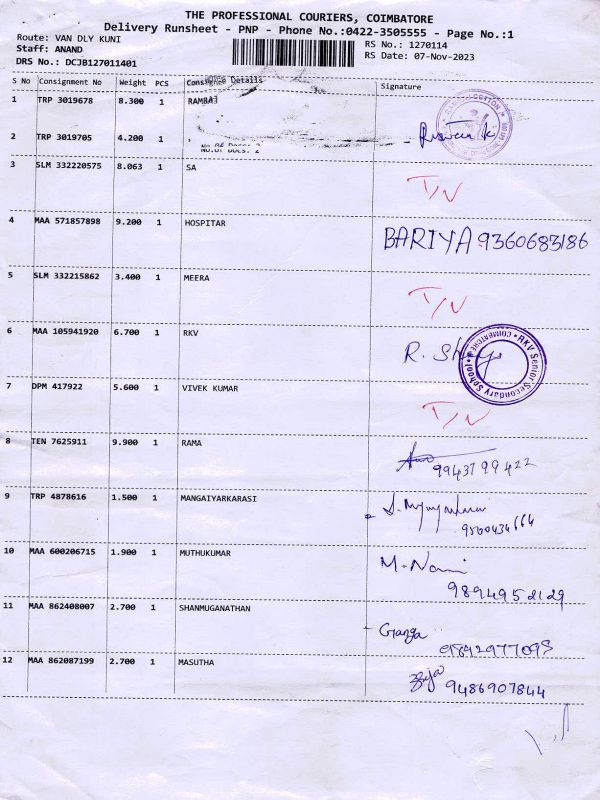 THE PROFESSIONAL COURIERS, COIMBATORE
Delivery Runsheet - PNP - Phone No.:0422-3505555 - Page No.:1
Route: VAN DLY KUNI
RS No.: 1270114
Staff: ANAND
RS Date: 07-Nov-2023
DRS No.: DCJB127011401
S No Consignment No Weight PCS Consignee Details Signature
1 TRP 3019678 8.300 1 RAMRAJ
2 TRP 3019705 4.200 1
No.Of Docs: 2
3 SLM 332220575 8.063 1 SA T/N
4 MAA 571857898 9.200 1 HOSPITAR BARIYA 9360683186
5 SLM 332215862 3.400 1 MEERA T/N
6 MAA 105941920 6.700 1 RKV R.
RKV Senior Secondary School COIMBATORE
7 DPM 417922 5.600 1 VIVEK KUMAR T/N
8 TEN 7625911 9.900 1 RAMA 9943799422
9 TRP 4878616 1.500 1 MANGAIYARKARASI
10 MAA 600206715 1.900 1 MUTHUKUMAR
9894952129
11 MAA 862408007 2.700 1 SHANMUGANATHAN Ganga
9892977095
12 MAA 862087199 2.700 1 MASUTHA
9486907844